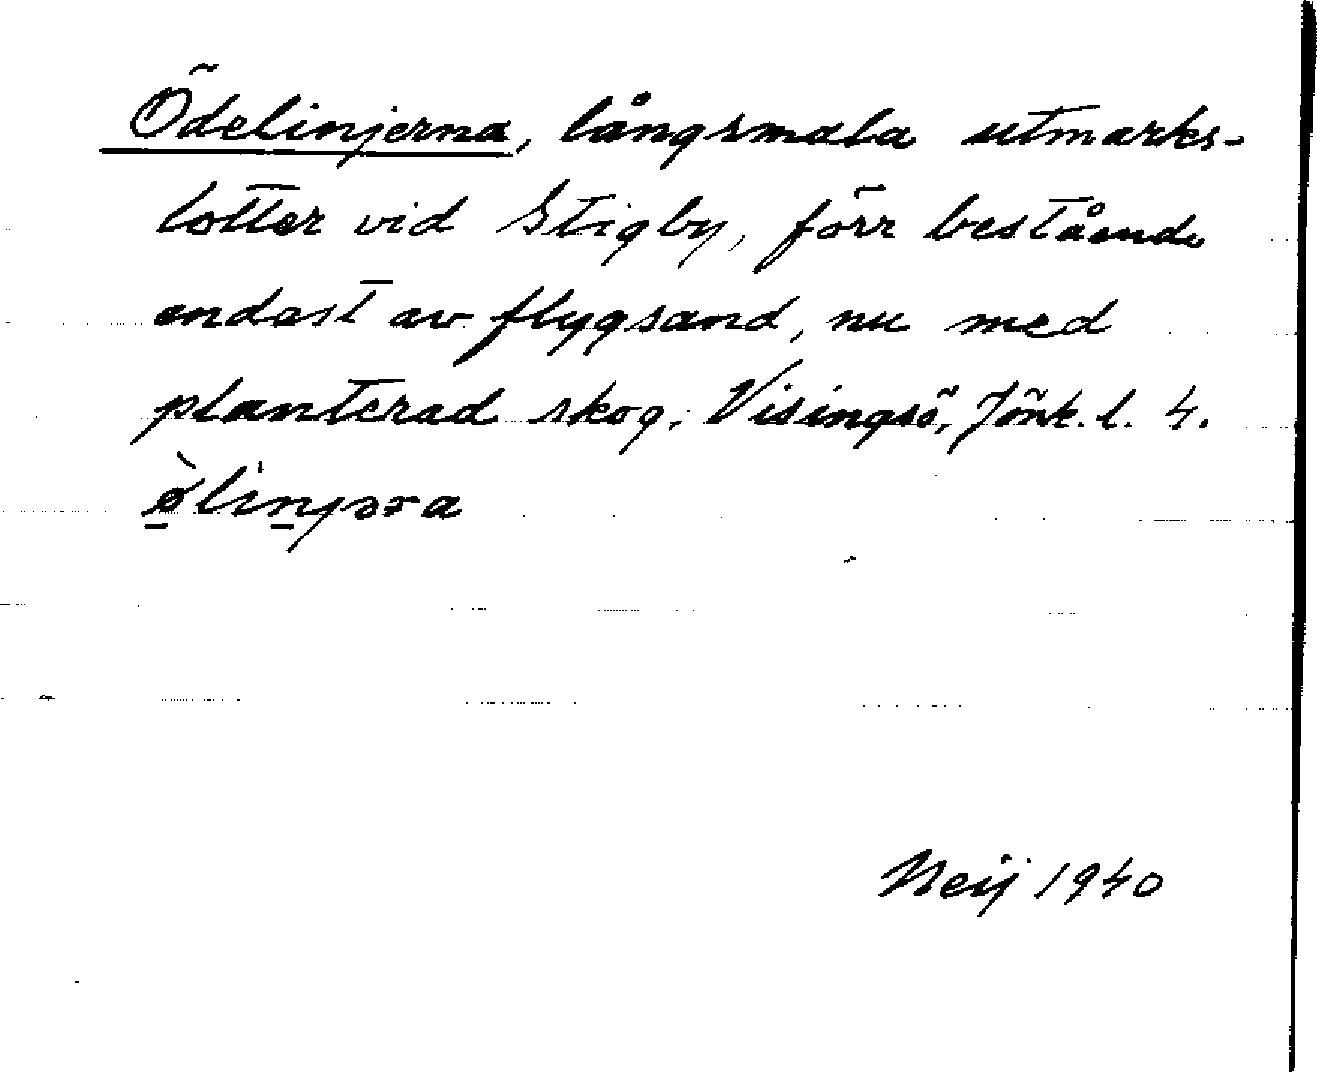 Ödelinjerna, långsmala utmarks-
lotter vid Stigby, förr bestående
endast av flygsand, nu med
planterad skog. Visingsö, Jönk. l. 4.
Neij 1940